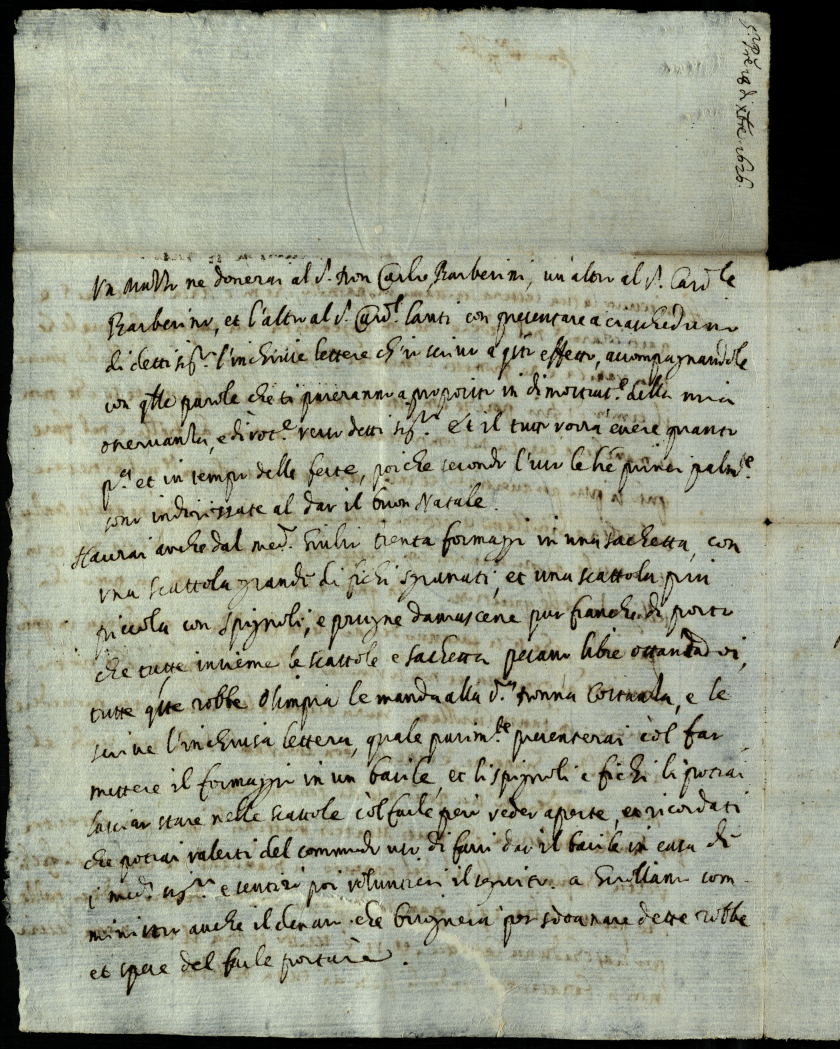 ne donerai al S. Don Carlo Barberini, un altro al S. Card.le
Barberino, et l'altro al S. Card.l Lanti con presentare a ciascheduno
di detti sig.ri l'inchiuse lettere ch'io scrivo a q.to effetto, accompagnandole
con q.lle parole che ti pareranno a proposito in dimostrat.e della mia
osservanza, e divot.e verso detti sig.ri Et il tutto vorrà essere quanto
p.a et in tempo delle feste, poiche secondo l'uso le principalm.te
sono indirizzate al dar il buon Natale.
Haurai anche dal med.o Giulio trenta formaggi in una sachetta, con
una scattola grande di fichi, et una scattola più
piccola con spignoli, e prugne damascene pur franche di porto
che tutte insieme le scattole e sachetta pesano libre ottantadoi,
tutte q.te robbe Olimpia le manda alla S.ra Donna Costanza, e le
scrive l'inchiusa lettera, quale parim.te presenterai col far
mettere il formaggi in un bacile, et li spignoli e fichi li potrai
lasciar stare nelle scattole col farle però veder aperte, e ricordati
che potrai valerti del commodo di farti dar il bacile in casa di
med.i sig.ri e sentirò poi volontieri il seguito. a Giulliano som-
ministro anche il denaro che bisognerà per sdoanare dette robbe
et spese del farle portare.